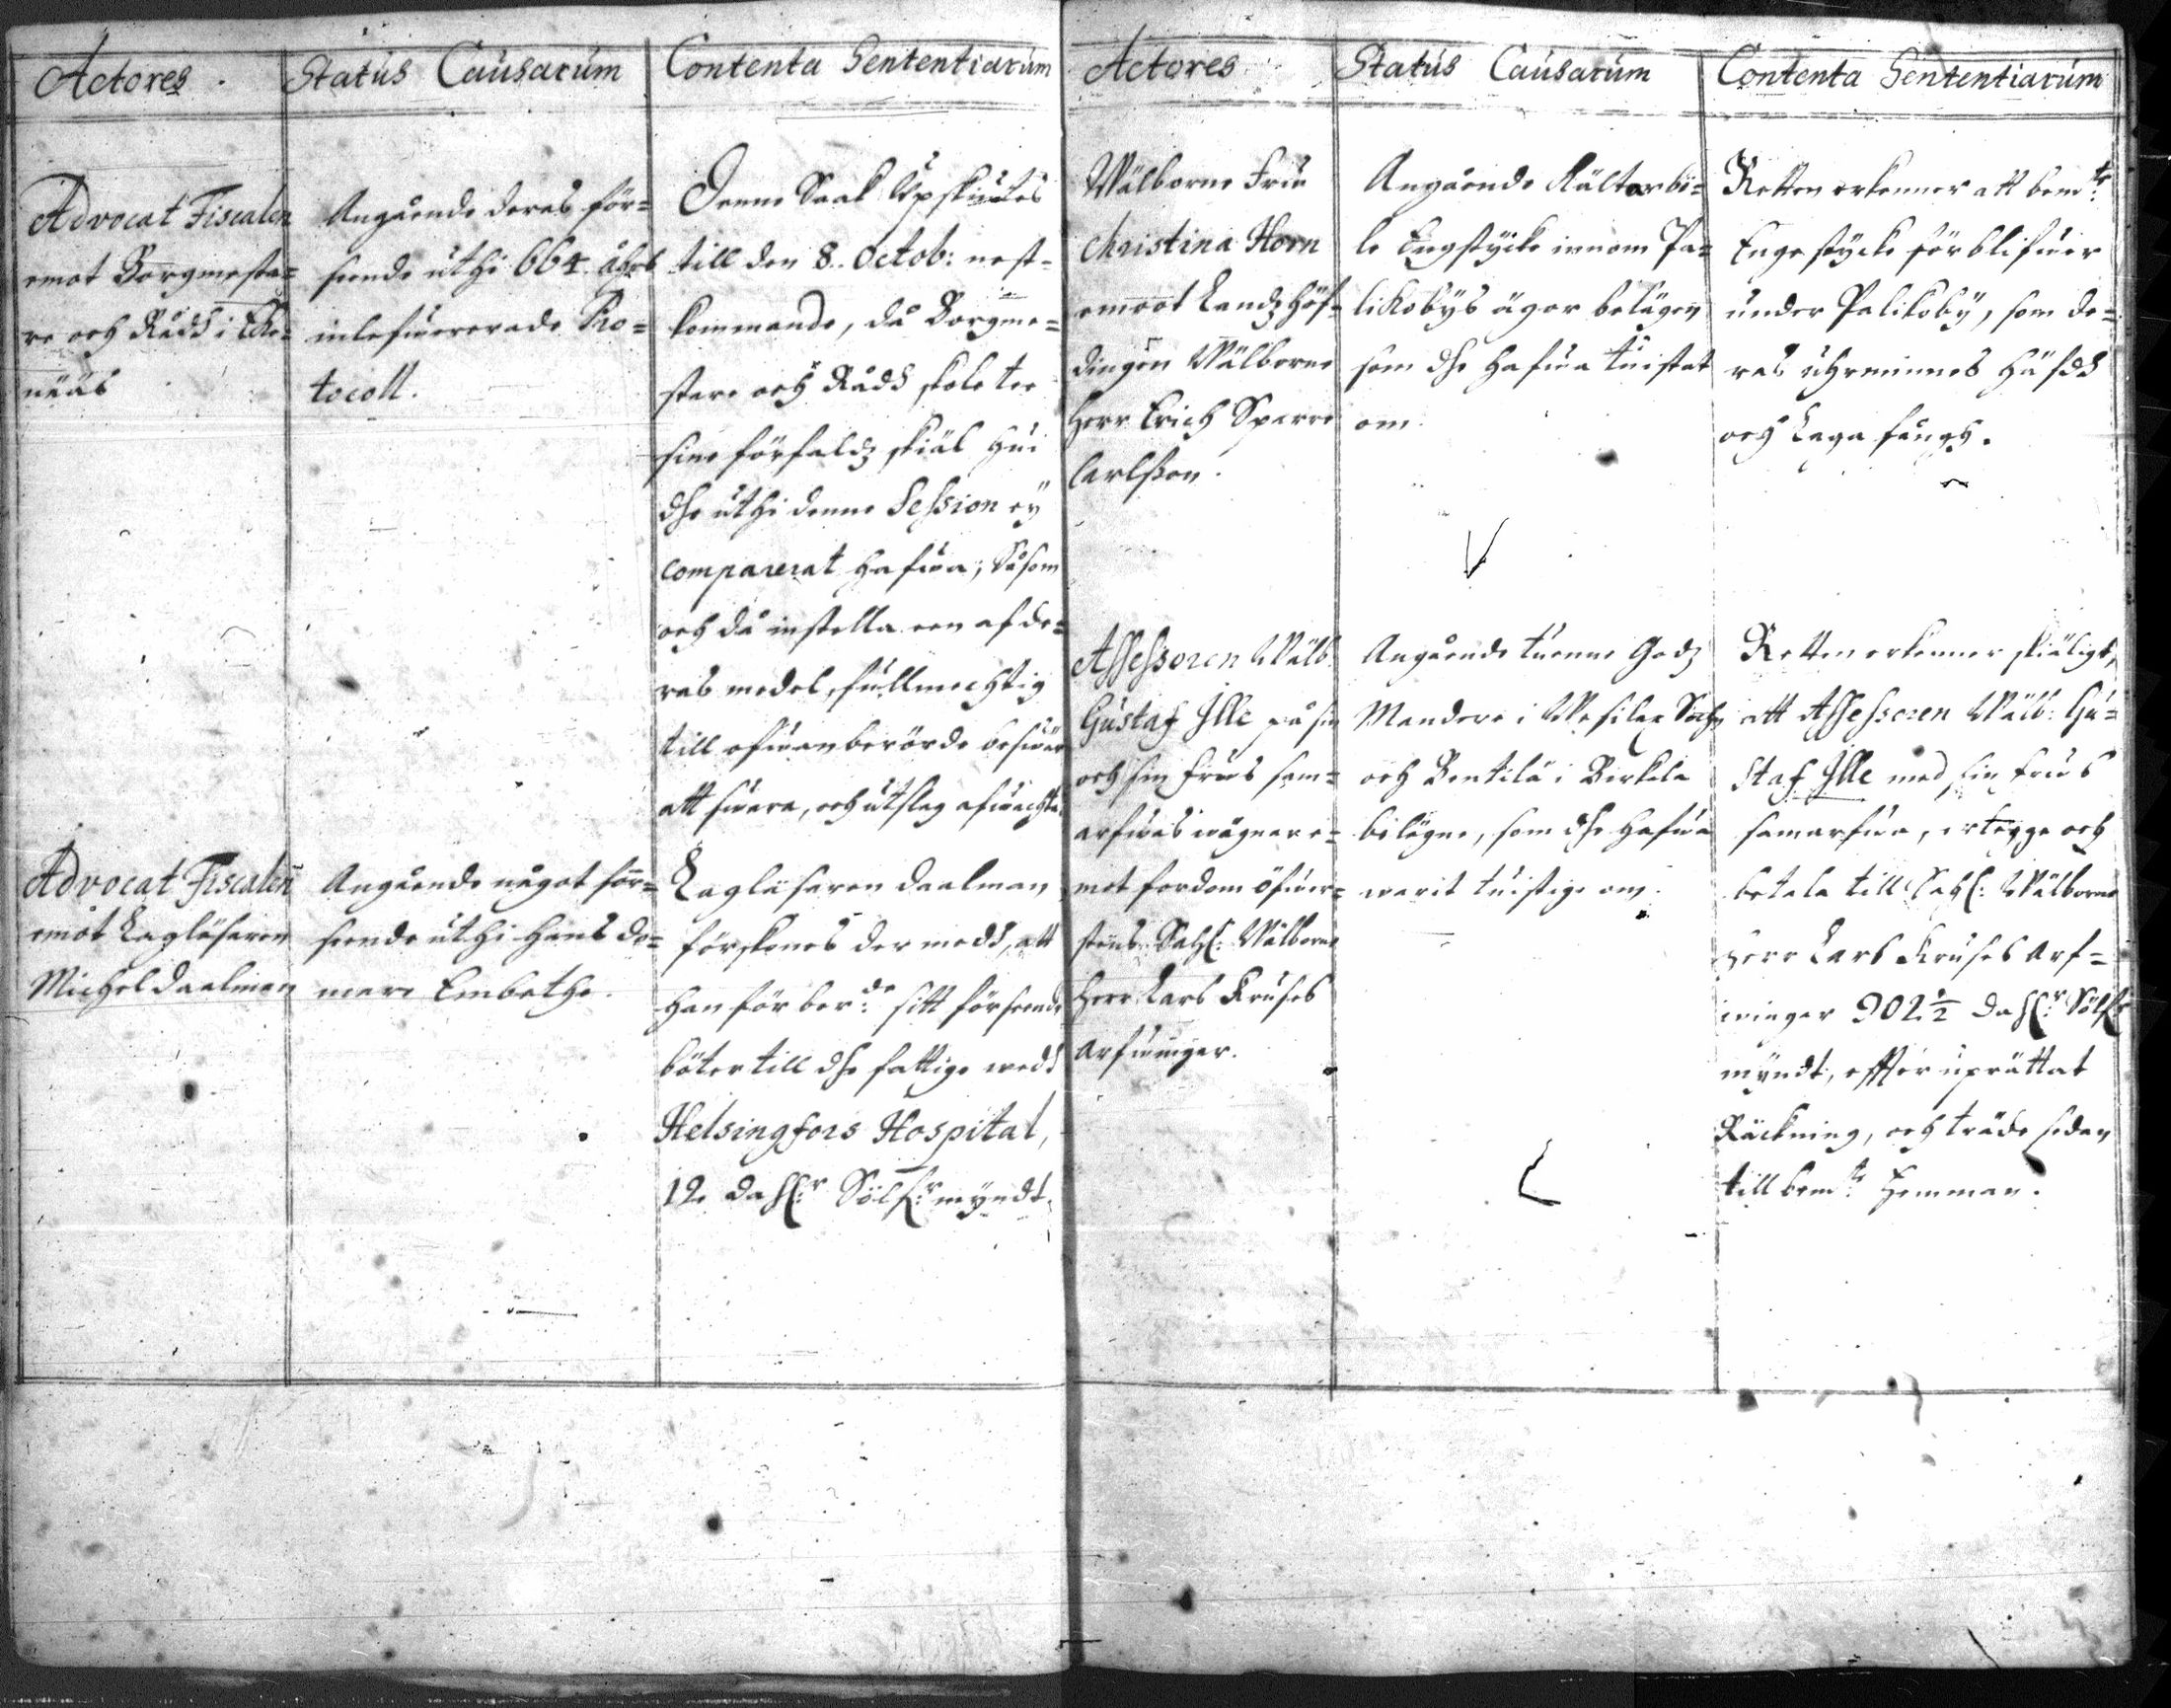 Actores
Status Causarum
Contenta Sententiarum
Advocat Fiscalen
emot Borgmesta=
re och Rådh i Eke=
nääs
Angående deras för=
seende uthi 664 åhrs
inlefwererade Pro=
tocoll.
Denne Saak Upskiutes
till den 8. Octob: nest=
kommande, då Borgme=
stare och Rådh skole tee
sine förfaldz skiäl hui
dhe uthi denne Session ey
comparerat hafwa; Såsom
och då instella een af de=
ras medel, fullmechtig
till ofwanberörde beswär
att swara, och utslag afwachta.
Advocat Fiscalen
emot Lagläsaren
Michel Daalman
Angående något för=
seende uthi hans do=
mare Embethe.
Lagläsaren Daalman
förskones der medh, att
han för ber:de sitt förseende
böter till dhe fattige wedh
Helsingfors Hospital,
12 dahl:r Sölf:r myndt.
Actores
Status Causarum
Contenta Sententiarum
Wälborne Fru
Christina Horn
emoot Landzhöf=
dingen Wälborne
Herr Erich Sparre
Carlsson.
Angående Kältarbi=
le Engstycke innom Pa=
likobys ägor belägen
som dhe hafwa tuistat
om.
Retten erkenner att bem:te
Enge stycke förblifwer
under Palikoby, som de=
ras uhrminnes häfdh
och Laga fångh.
Assessoren Wälb:
Gustaf Ille på sin
och sin Frus sam=
arfwas wägnar e=
mot fordom Öfwer=
stens Sahl: Wälborne
Herr Lars Kruses
Arfwinger.
Angående tuenne Godz
Mandere i Wesilax Sochn
och Bentilä i Birkala
belägne, som dhe hafwa
warit tuistige om.
Retten erkenner skiäligt,
att Assessoren Wälb: Gu=
staf Ille med sin Frus
samarfwa, erlegge och
betala till Sahl: Wälborne
Herr Lars Kruses Arf=
winger 902 1/2 dahl:r Sölf:r
myndt, effter uprättat
Räckning, och träde sedan
till bem:te Hemman.